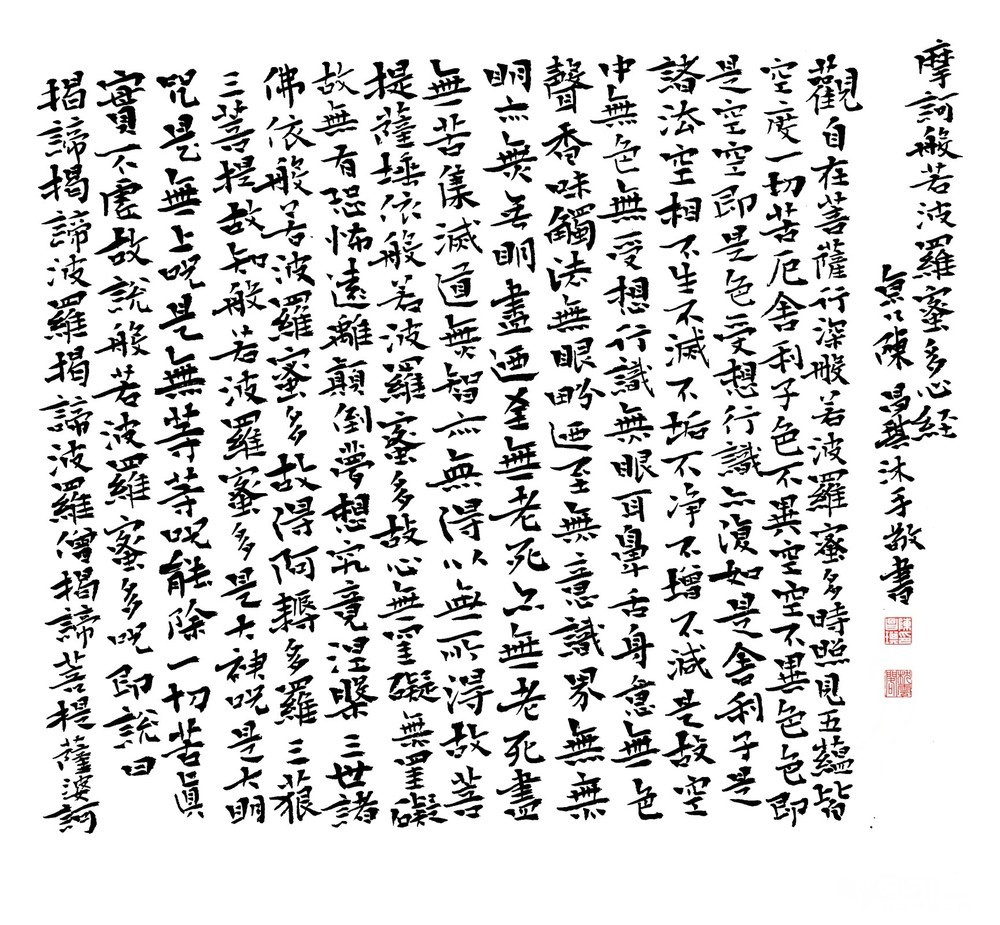 摩訶般若波羅蜜多心経
陳昌沐手敬書
觀自在菩薩行深般若波羅蜜多時照見五蘊皆
空度一切苦厄舍利子色不異空空不異色色即
是空空即是色受想行識亦復如是舍利子是
諸法空相不生不滅不垢不净不增不減是故空
中無色無受想行識無眼耳鼻舌身意無色
聲香味觸法無眼界迺至無意識界無無
明亦無無明盡迺至無老死亦無老死盡
無苦集滅道無智亦無得以無所得故菩
提薩埵依般若波羅蜜多故心無罣礙無罣礙
故無有恐怖遠離顛倒夢想究竟涅槃三世諸
佛依般若波羅蜜多故得阿耨多羅三藐
三菩提故知般若波羅蜜多是大神呪是大明
呪是無上呪是無等等呪能除一切苦真
實不虛故說般若波羅蜜多呪即說曰
揭諦揭諦波羅揭諦波羅僧揭諦菩提薩婆訶